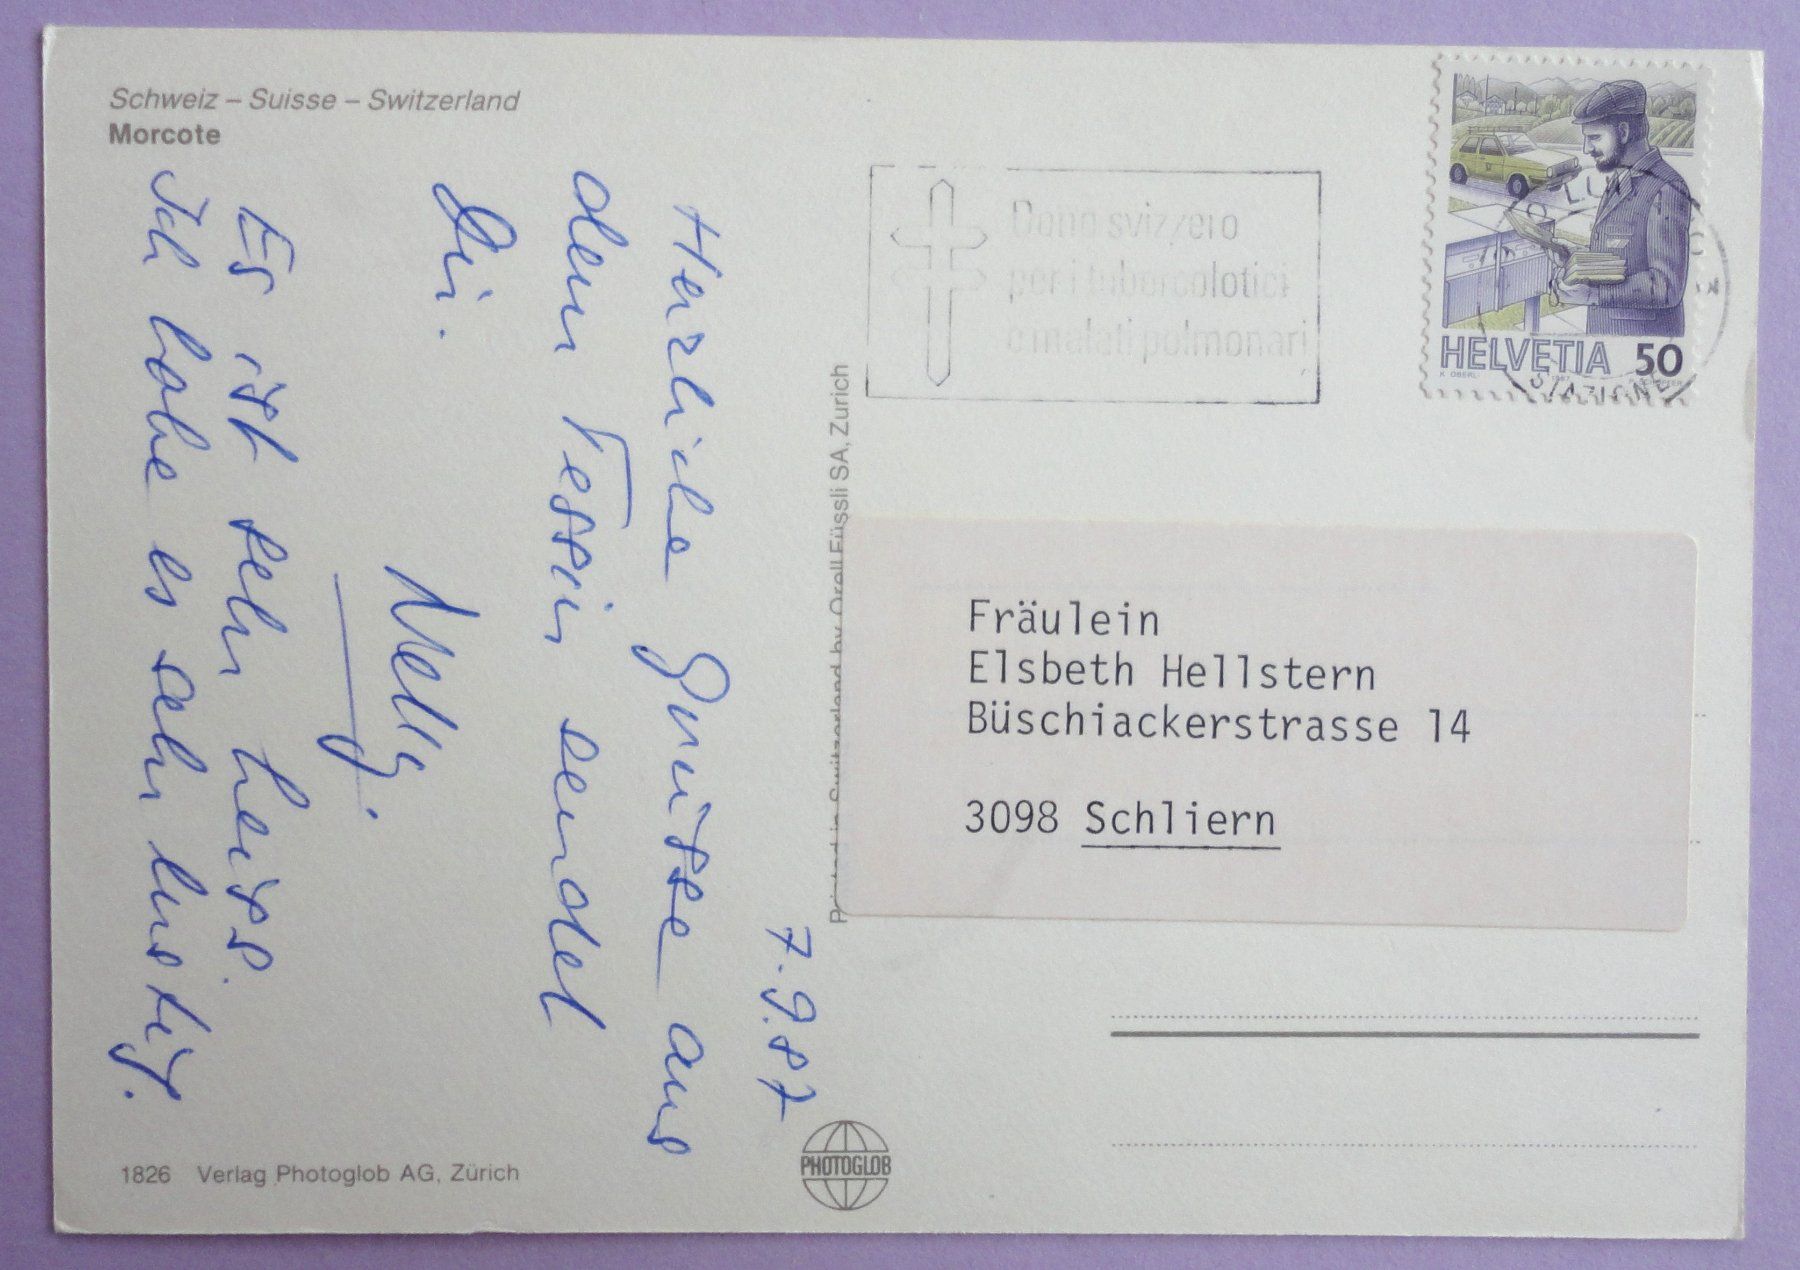 Schweiz – Suisse – Switzerland
Morcote
7.9.87
Herzliche Grüsse aus
dem Tessin sendet
Dir.
Nelly.
Es ist sehr heiss.
Ich habe es sehr lustig.
1826 Verlag Photoglob AG, Zürich
PHOTOGLOB
Printed in Switzerland by Orell Füssli SA, Zürich
Dono svizzero
per i tubercolotici
e malati polmonari
HELVETIA 50
STAZIONE
Fräulein
Elsbeth Hellstern
Büschiackerstrasse 14
3098 Schliern